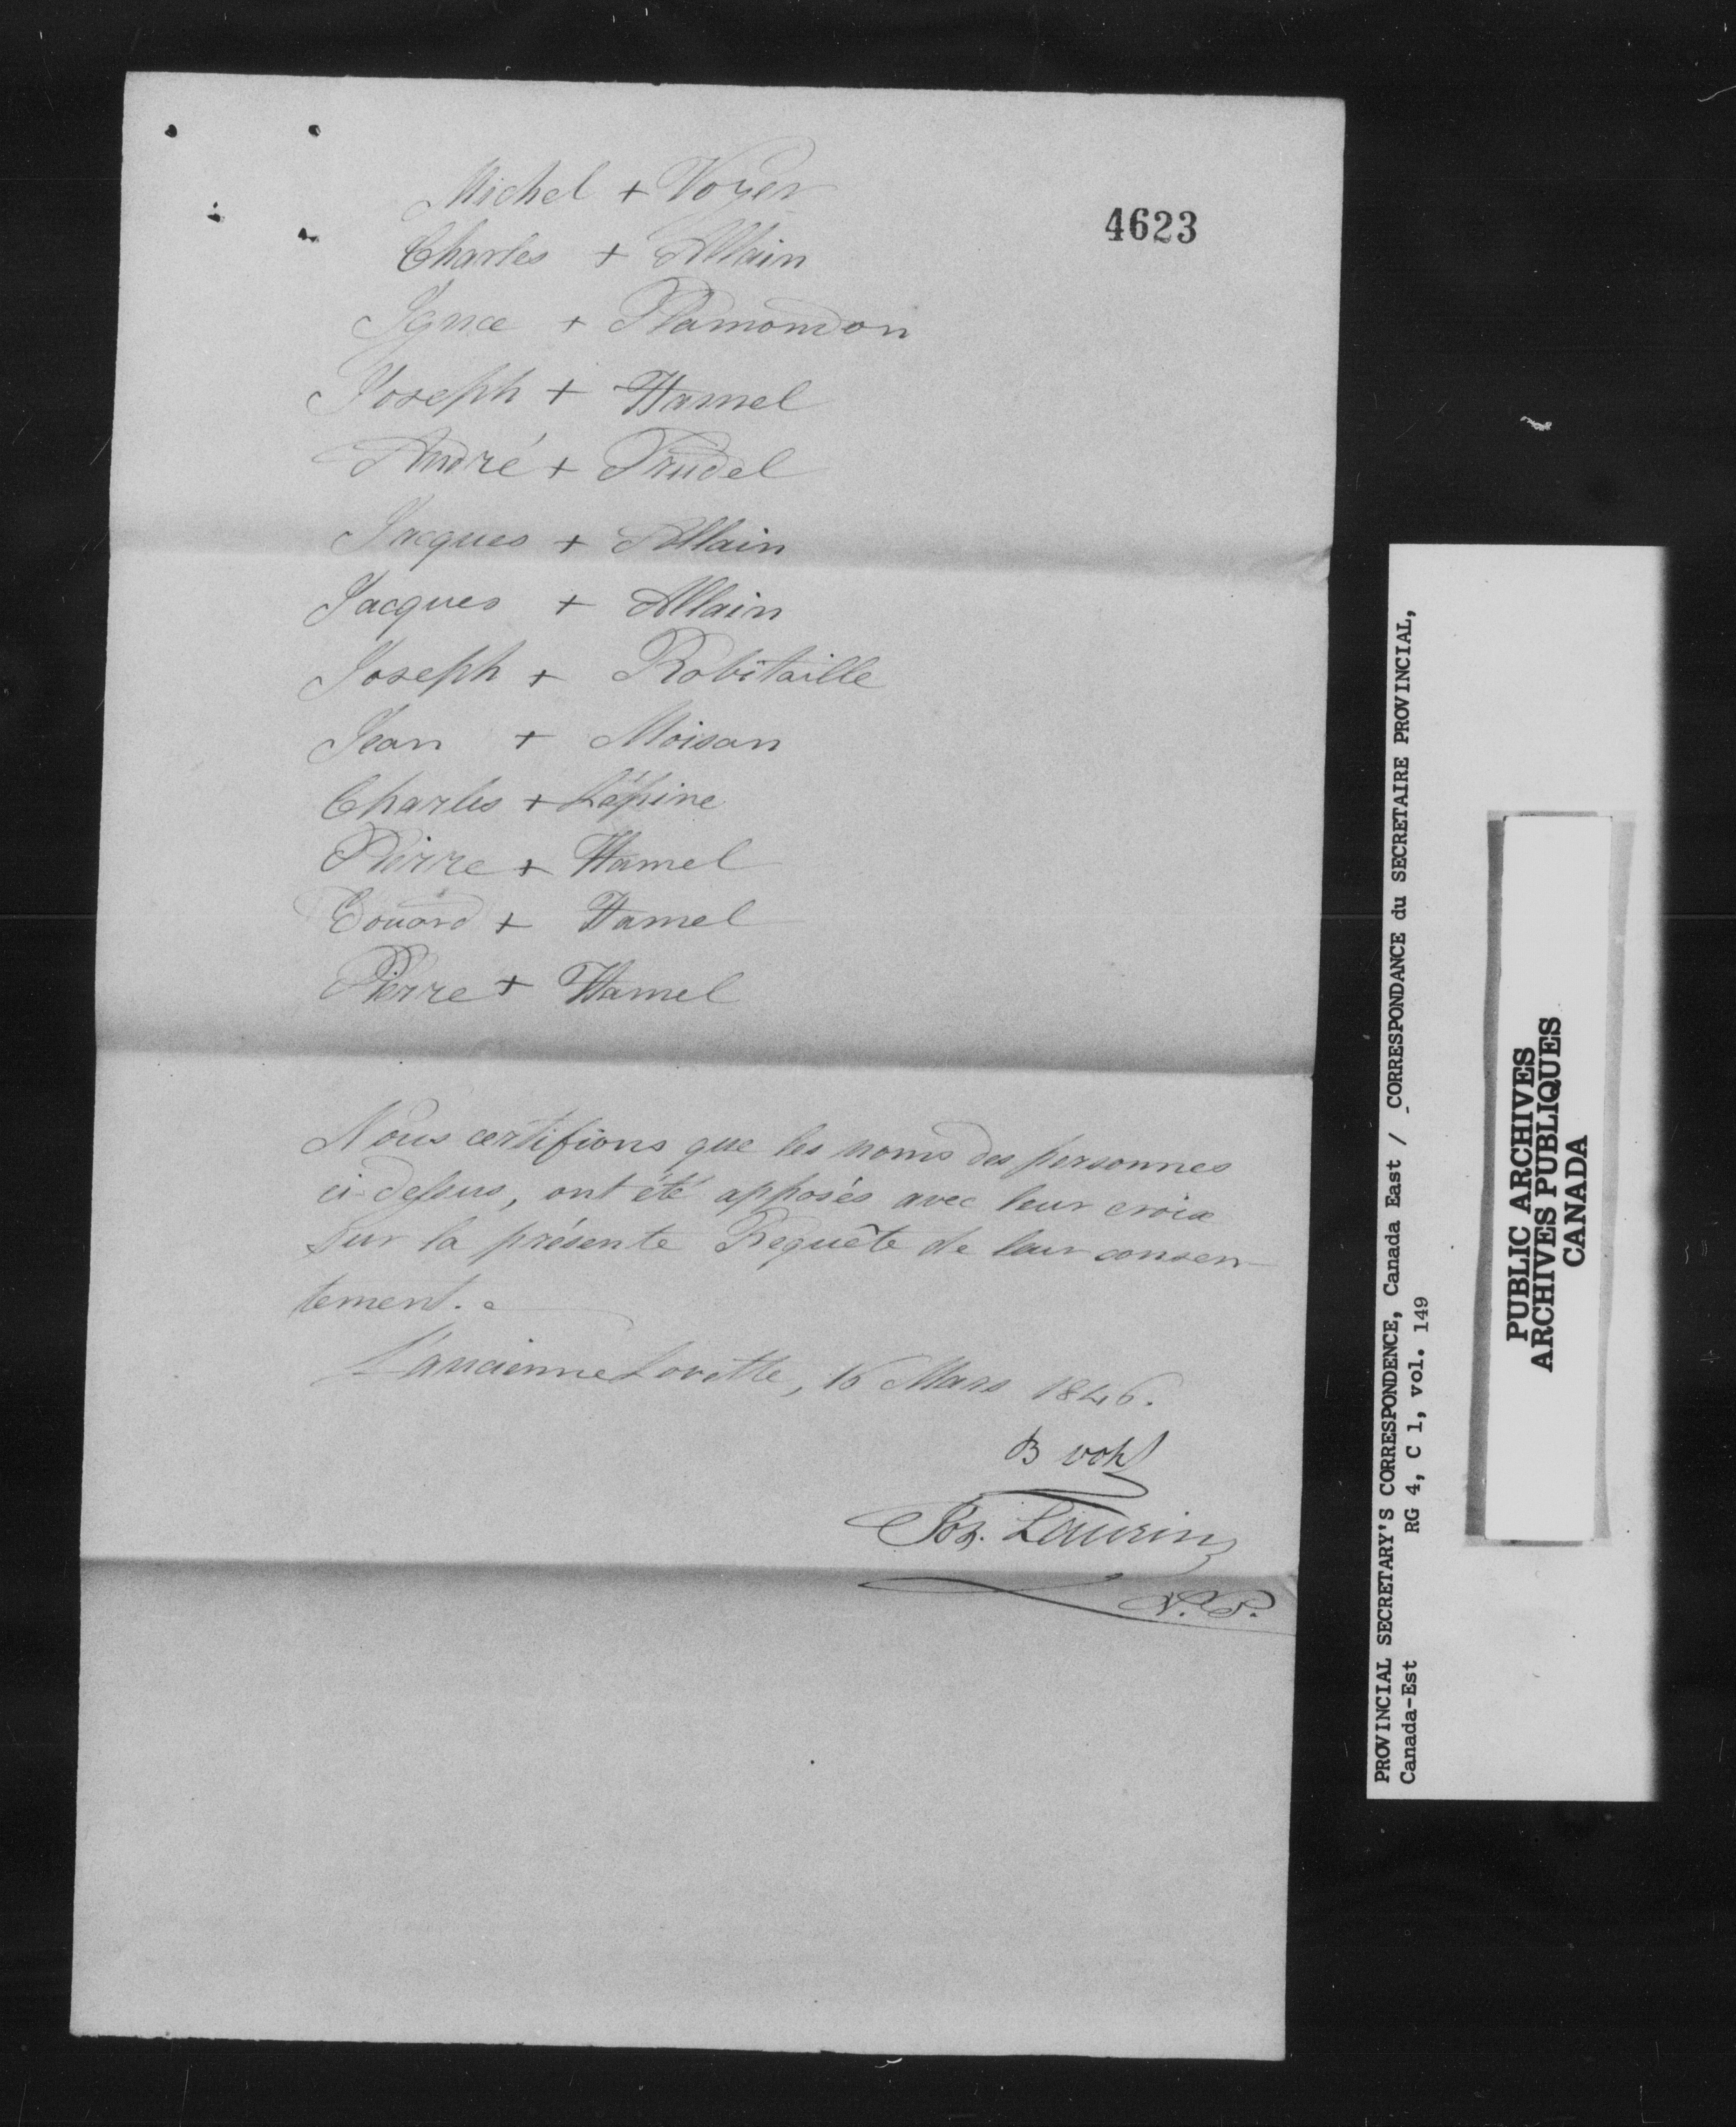 4623
Michel + Voyer
Charles + Allain
Ignce + Plamondon
Joseph + Hamel
André + Trudel
Jacques + Allain
Jacques + Allain
Joseph + Robitaille
Jean + Moisan
Charles + Lépine
Pierre + Hamel
Edouard + Hamel
Pierre + Hamel
Nous certifions que les noms des personnes
ci-dessus, ont été apposés avec leur croix
sur la présente Requête de leur consen-
tement.
L'ancienne Lorette, 16 Mars 1846.
B voh
Jos. Laurin
N.P.
PROVINCIAL SECRETARY'S CORRESPONDENCE, Canada East / CORRESPONDANCE du SECRETAIRE PROVINCIAL,
Canada-Est RG 4, C 1, vol. 149
PUBLIC ARCHIVES
ARCHIVES PUBLIQUES
CANADA